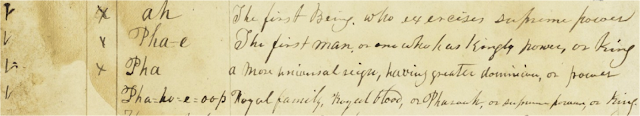 x ah The first Being. who exercises supreme power
x Pha-e The first man, or one who has Kingly power, or King
x Pha a more universal reign, having greater dominion, or power
Pha=ho=e=oop Royal family, Royal blood, or Pharaoh, or supreme power, or King.